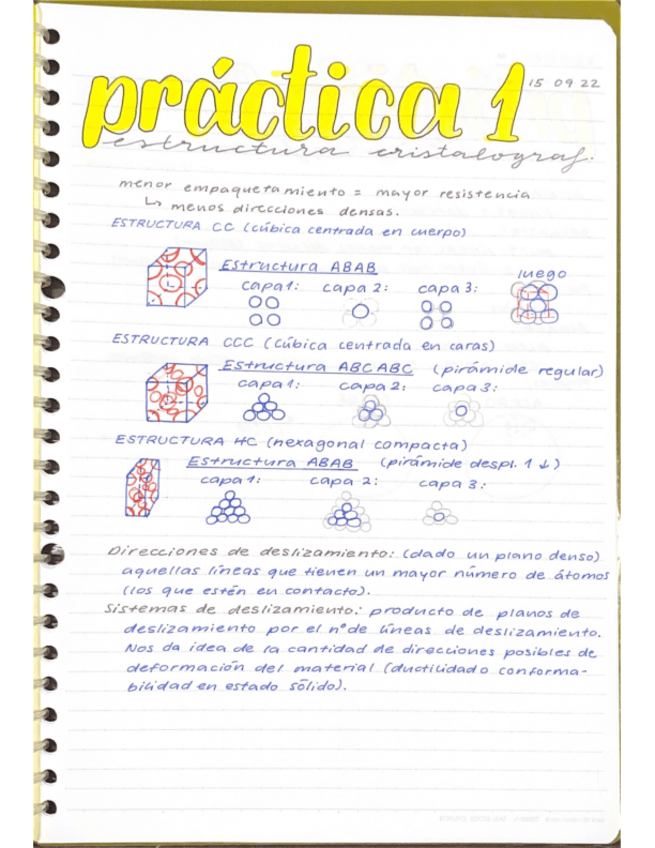 práctica 1
15 09 22
estructura cristalograf.
menor empaquetamiento = mayor resistencia
↳ menos direcciones densas.
ESTRUCTURA CC (cúbica centrada en cuerpo)
Estructura ABAB
luego
capa 1: capa 2: capa 3:
ESTRUCTURA CCC (cúbica centrada en caras)
Estructura ABCABC (pirámide regular)
capa 1: capa 2: capa 3:
ESTRUCTURA HC (hexagonal compacta)
Estructura ABAB (pirámide despl. 1 ↓)
capa 1: capa 2: capa 3:
Direcciones de deslizamiento: (dado un plano denso)
aquellas líneas que tienen un mayor número de átomos
(los que estén en contacto).
Sistemas de deslizamiento: producto de planos de
deslizamiento por el nº de líneas de deslizamiento.
Nos da idea de la cantidad de direcciones posibles de
deformación del material (ductilidad o conforma-
bilidad en estado sólido).